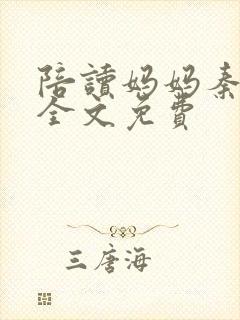 陪讀妈妈秦
全文免費
三唐海